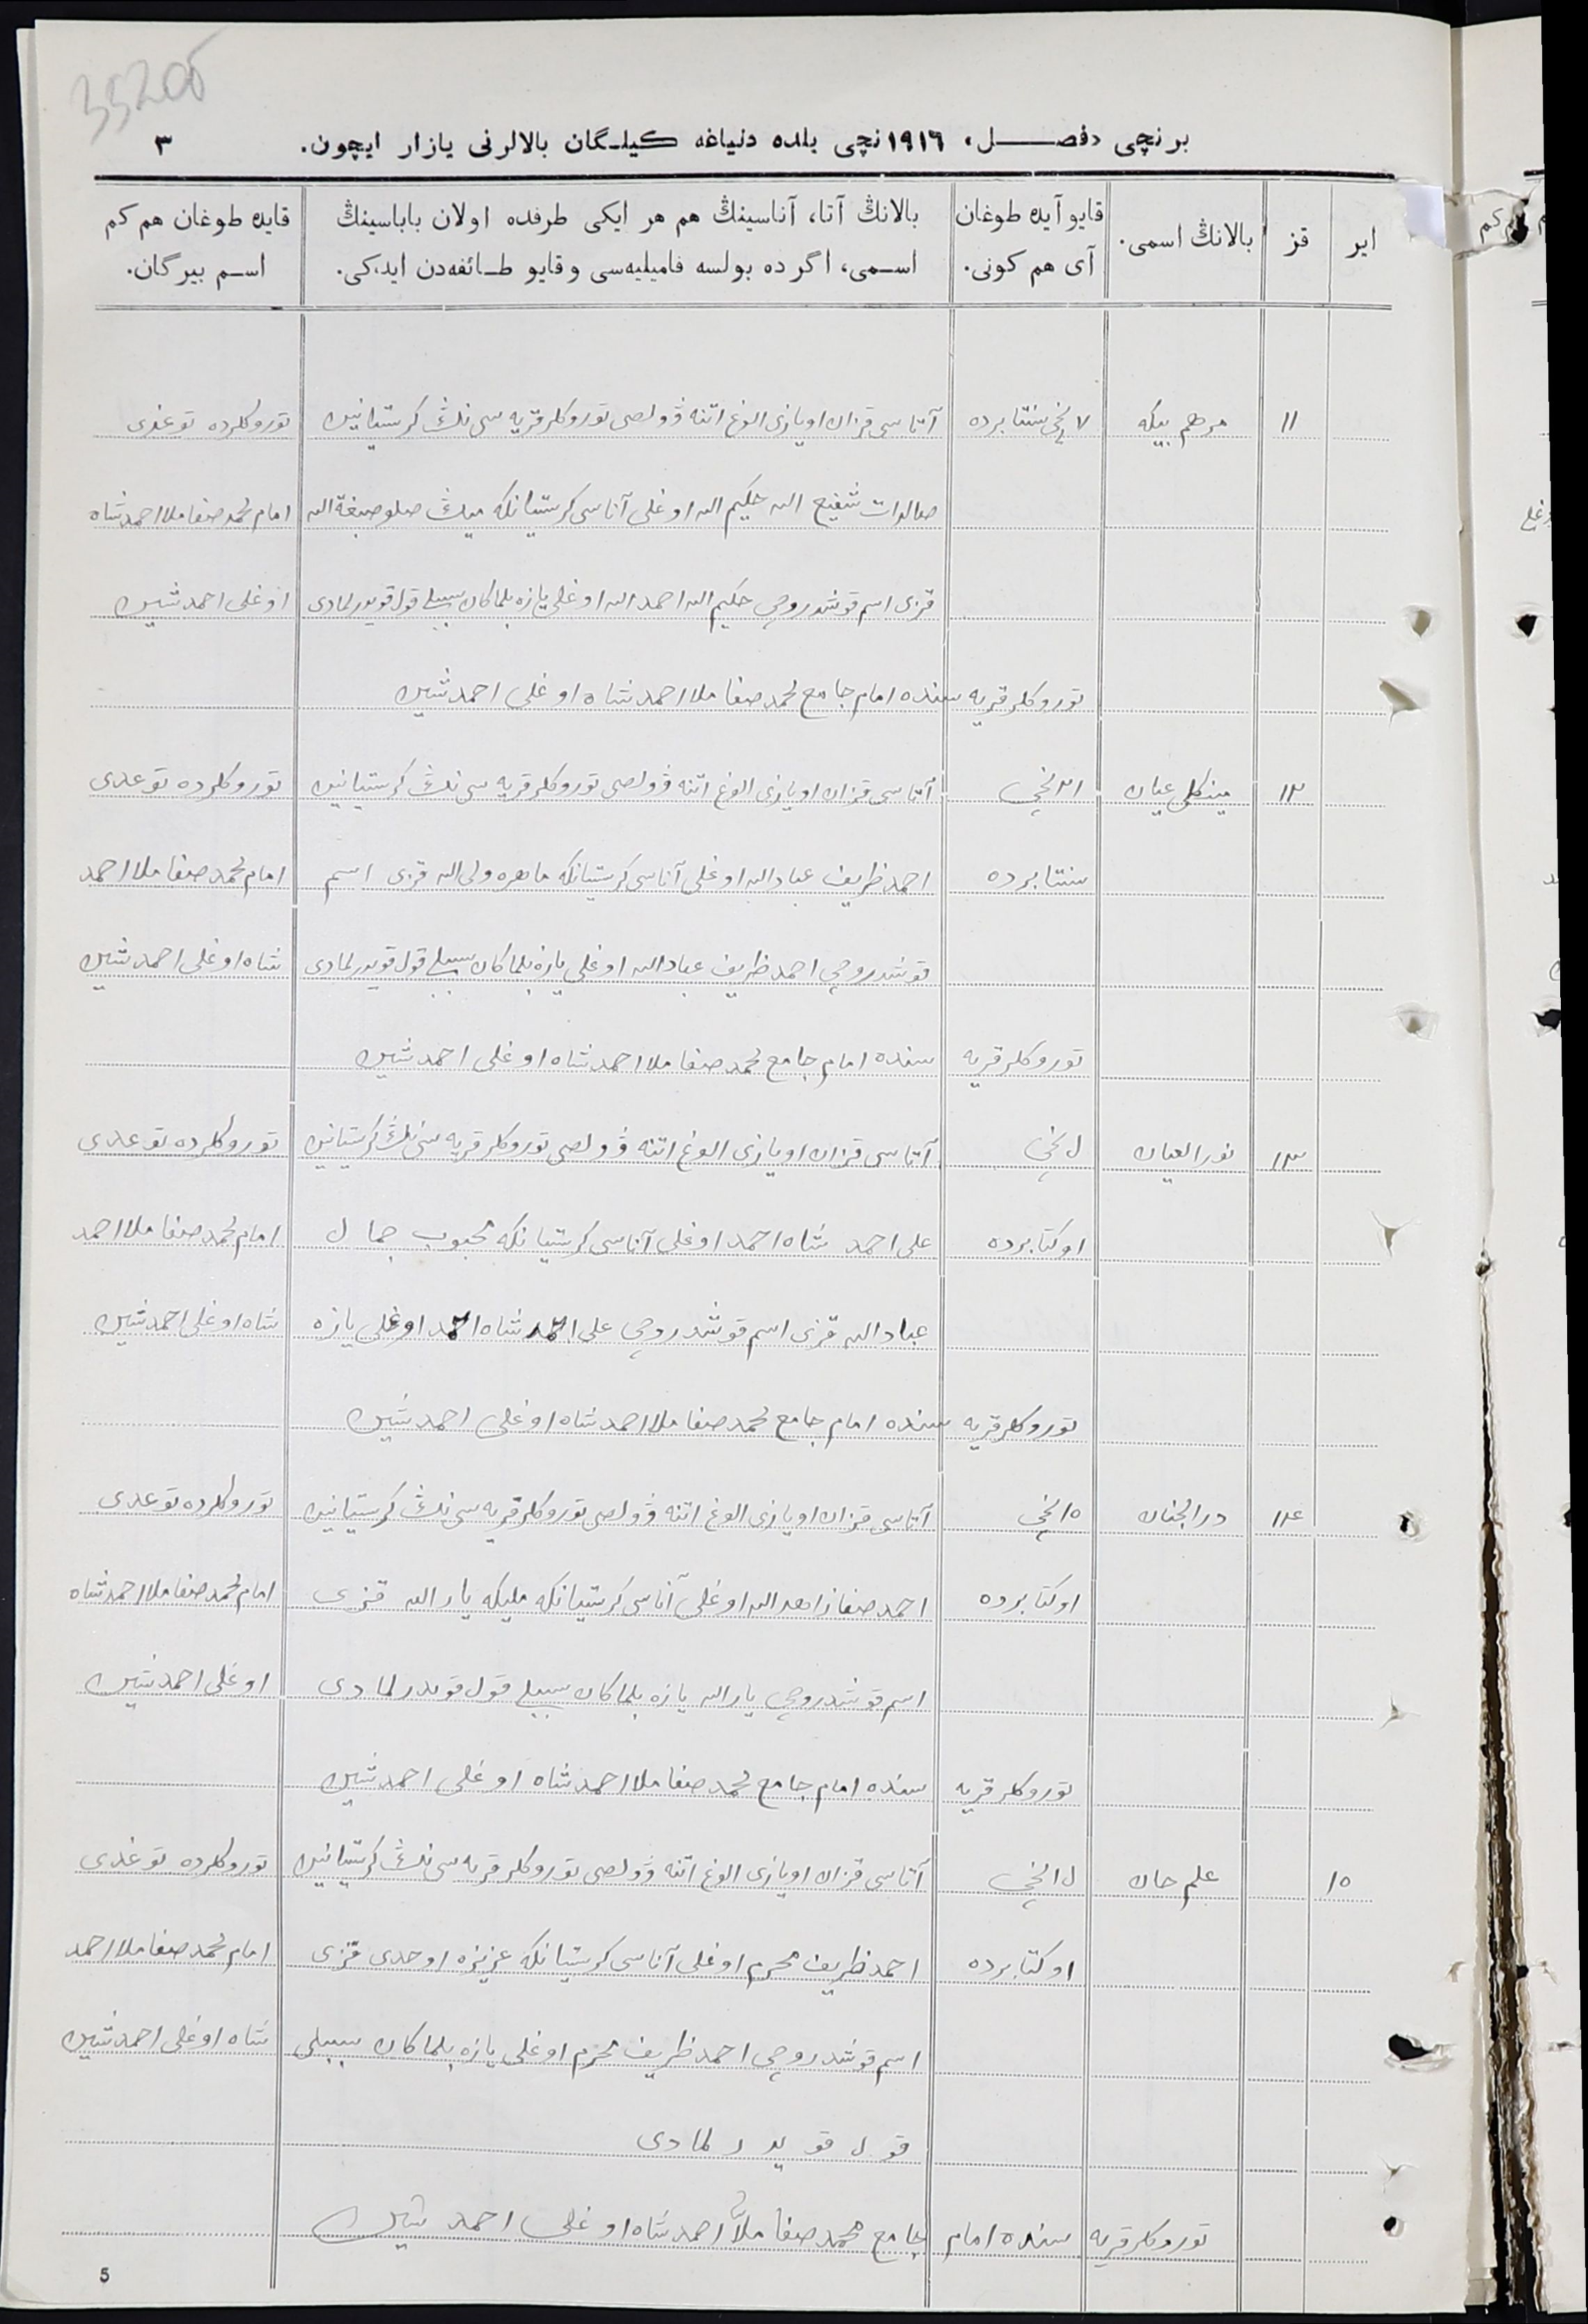 33205
برنچی «فصل» ١٩١٦نچی یلده دنیاغه کیلگان بالالرنی یازار ایچون. ٣
ایر قز بالانڭ اسمی. قایو آیده طوغان آی هم کونی. بالانڭ آتا، آناسینڭ هم هر ایکی طرفده اولان باباسینڭ اسمی، اگرده بولسه فامیلیه‌سی و قایو طائفه‌دن ایدکی. قایده طوغان هم کم اسم بیرگان.
١١ مرهم بیکه ٧ نچی سنتابرده آتاسی قزان اویازی الوغ اتنه ڤولصی توروکلر قریه سی ننڭ کرستیانین توروکلرده توغدی
شفیع الله حکیم الله اوغلی آناسی کرستیانکه صبغة الله امام محمد صفا ملا احمد شاه
قزی اسم قوشدروچی حکیم الله احمد الله اوغلی یازه بلماکان سببلی قول قویدرلمادی اوغلی احمد شین
توروکلر قریه سنده امام جامع محمد صفا ملا احمد شاه اوغلی احمد شین
١٢ مینکلی عیان سنتابرده آتاسی قزان اویازی الوغ اتنه ڤولصی توروکلر قریه سی ننڭ کرستیانین توروکلرده توغدی
احمد ظریف عباد الله اوغلی آناسی کرستیانکه ماهره ولی الله قزی اسم امام محمد صفا ملا احمد
قوشدروچی احمد ظریف عباد الله اوغلی یازه بلماکان سببلی قول قویدرلمادی شاه اوغلی احمد شین
توروکلر قریه سنده امام جامع محمد صفا ملا احمد شاه اوغلی احمد شین
١٣ نور العیان آتاسی قزان اویازی الوغ اتنه ڤولصی توروکلر قریه سی ننڭ کرستیانین توروکلرده توغدی
اوکتابرده علی احمد شاه احمد اوغلی آناسی کرستیانکه محبوب جمال امام محمد صفا ملا احمد
عباد الله قزی اسم قوشدروچی علی احمد شاه احمد اوغلی یازه شاه اوغلی احمد شین
توروکلر قریه سنده امام جامع محمد صفا ملا احمد شاه اوغلی احمد شین
١٤ در الجنان ١٥ نچی آتاسی قزان اویازی الوغ اتنه ڤولصی توروکلر قریه سی ننڭ کرستیانین توروکلرده توغدی
اوکتابرده احمد صفا زاهد الله اوغلی آناسی کرستیانکه ملیکه یار الله قزی امام محمد صفا ملا احمد شاه
اسم قوشدروچی یار الله یازه بلماکان سببلی قول قویدرلمادی اوغلی احمد شین
توروکلر قریه سنده امام جامع محمد صفا ملا احمد شاه اوغلی احمد شین
١٥ علم جان آتاسی قزان اویازی الوغ اتنه ڤولصی توروکلر قریه سی ننڭ کرستیانین توروکلرده توغدی
اوکتابرده احمد ظریف محرم اوغلی آناسی کرستیانکه عزیزه اوحدی قزی امام محمد صفا ملا احمد
اسم قوشدروچی احمد ظریف محرم اوغلی یازه بلماکان سببلی شاه اوغلی احمد شین
قول قویدرلمادی
توروکلر قریه سنده امام جامع محمد صفا ملا احمد شاه اوغلی احمد شین
5